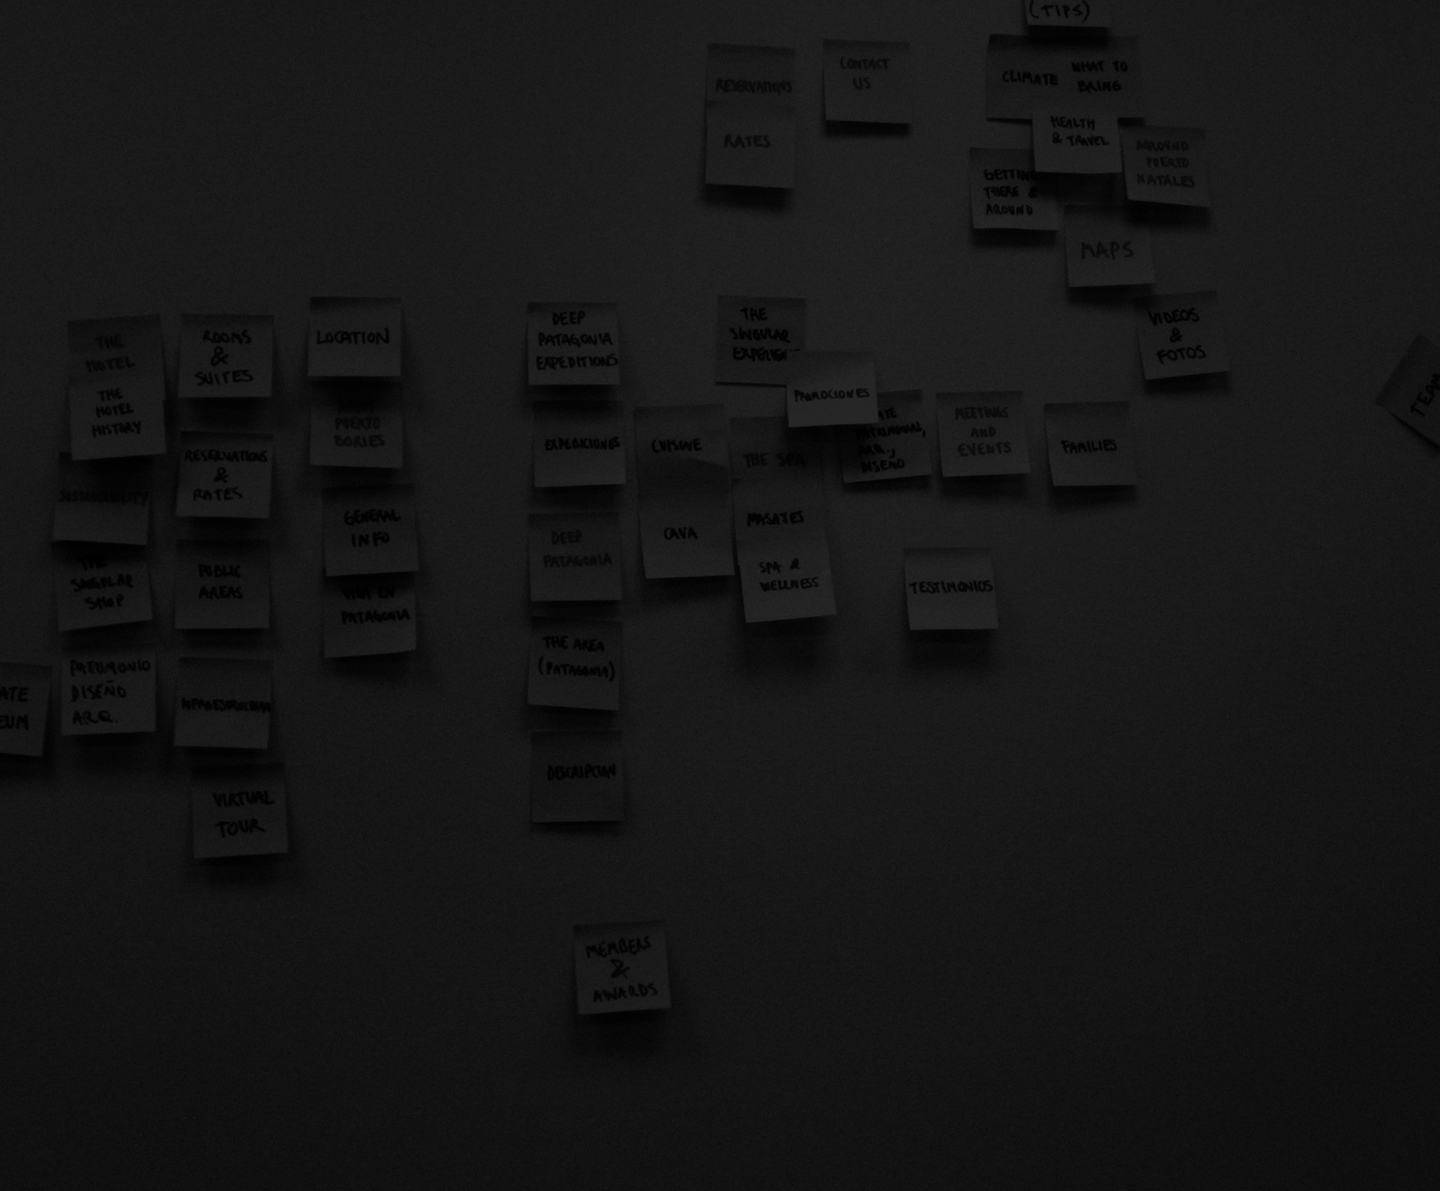 (TIPS)
RESERVATIONS
RATES
CONTACT
US
CLIMATE
WHAT TO
BRING
HEALTH
& TRAVEL
AROUND
PUERTO
NATALES
GETTING
THERE &
AROUND
MAPS
VIDEOS
&
FOTOS
TEAM
THE
HOTEL
THE
HOTEL
HISTORY
SUSTAINABILITY
THE
SINGULAR
SHOP
PATRIMONIO
DISEÑO
ARQ.
ROOMS
&
SUITES
RESERVATIONS
&
RATES
PUBLIC
AREAS
INFRAESTRUCTURA
VIRTUAL
TOUR
LOCATION
PUERTO
BORIES
GENERAL
INFO
VIDA EN
PATAGONIA
DEEP
PATAGONIA
EXPEDITIONS
EXPEDICIONES
DEEP
PATAGONIA
THE AREA
(PATAGONIA)
DESCRIPCION
THE
SINGULAR
PROMOCIONES
CUISINE
CAVA
THE SPA
MASAJES
SPA &
WELLNESS
ARQ.,
DISEÑO
MEETINGS
AND
EVENTS
FAMILIES
TESTIMONIOS
MEMBERS
&
AWARDS